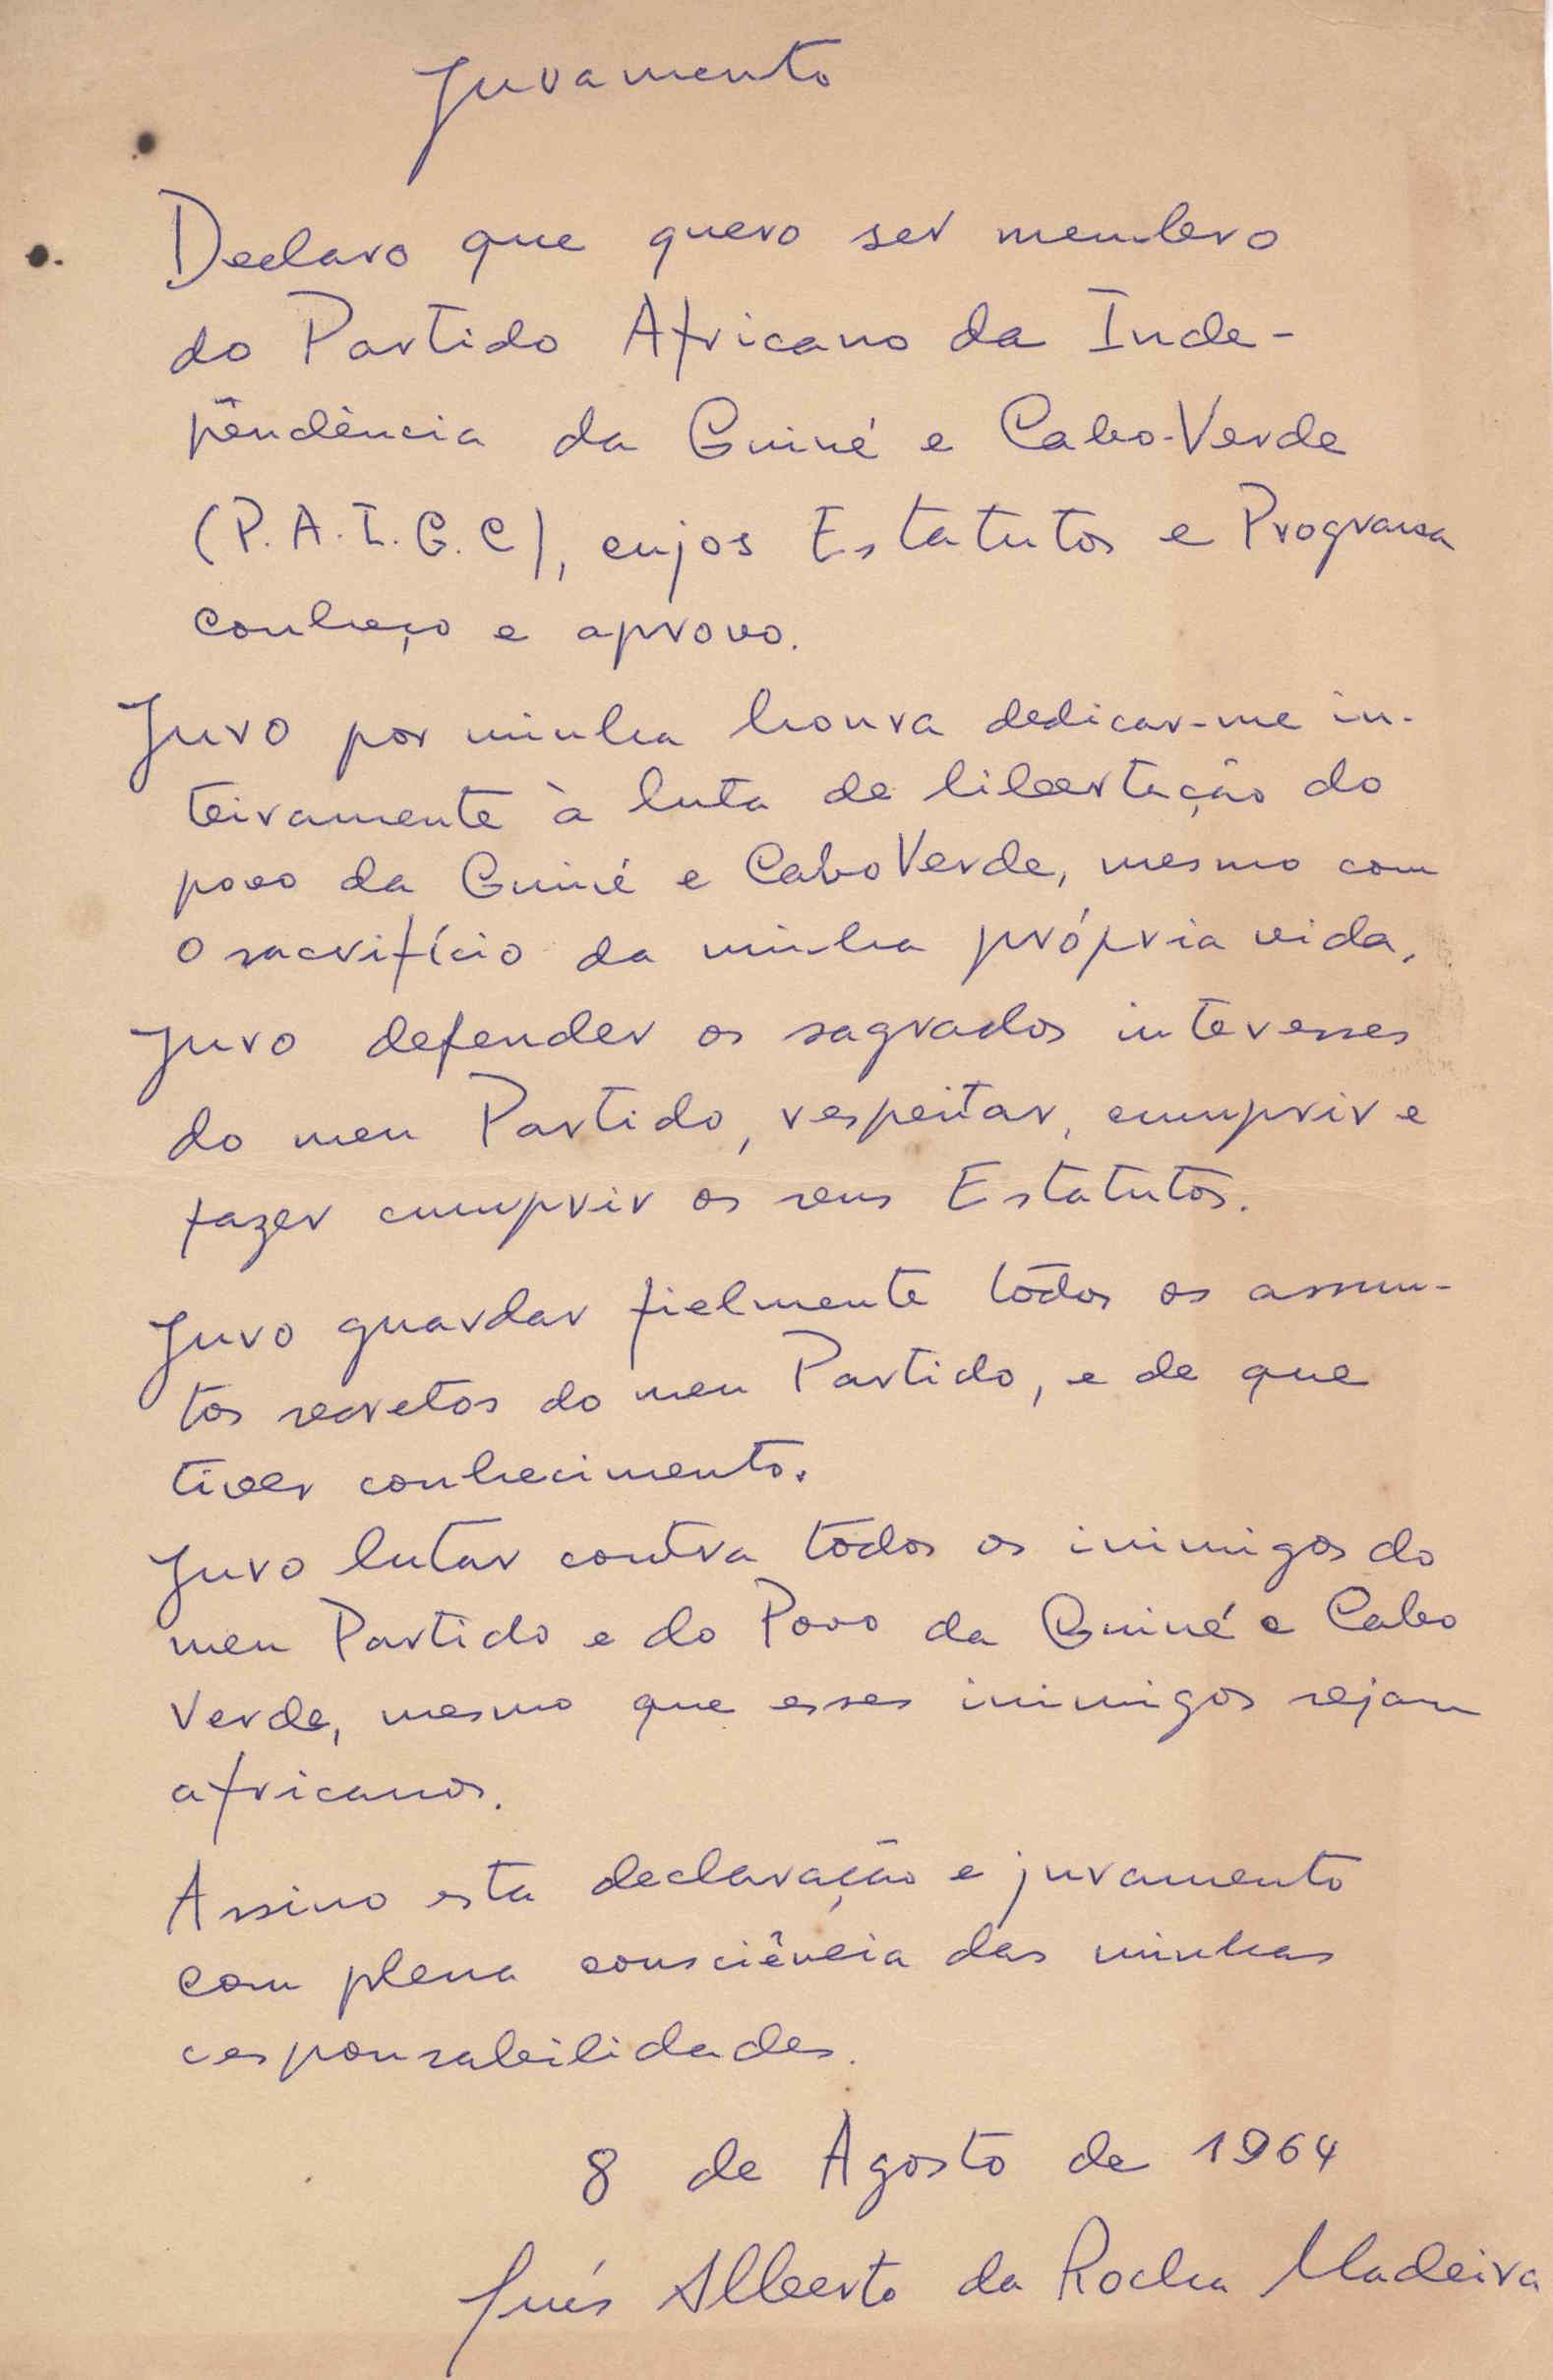 Juramento
Declaro que quero ser membro
do Partido Africano da Inde-
pêndência da Guiné e Cabo-Verde
(P.A.I.G.C), cujos Estatutos e Programa
conheço e aprovo.
Juro por minha honra dedicar-me in-
teiramente à luta de libertação do
povo da Guiné e Cabo Verde, mesmo com
o sacrifício da minha própria vida.
Juro defender os sagrados interesses
do meu Partido, respeitar, cumprir e
fazer cumprir os seus Estatutos.
Juro guardar fielmente tôdos os assun-
tos secretos do meu Partido, e de que
tiver conhecimento.
Juro lutar contra todos os inimigos do
meu Partido e do Povo da Guiné e Cabo
Verde, mesmo que esses inimigos sejam
africanos.
Assino esta declaração e juramento
com plena consciência das minhas
responsabilidades.
8 de Agosto de 1964
Alberto da Rocha Madeira